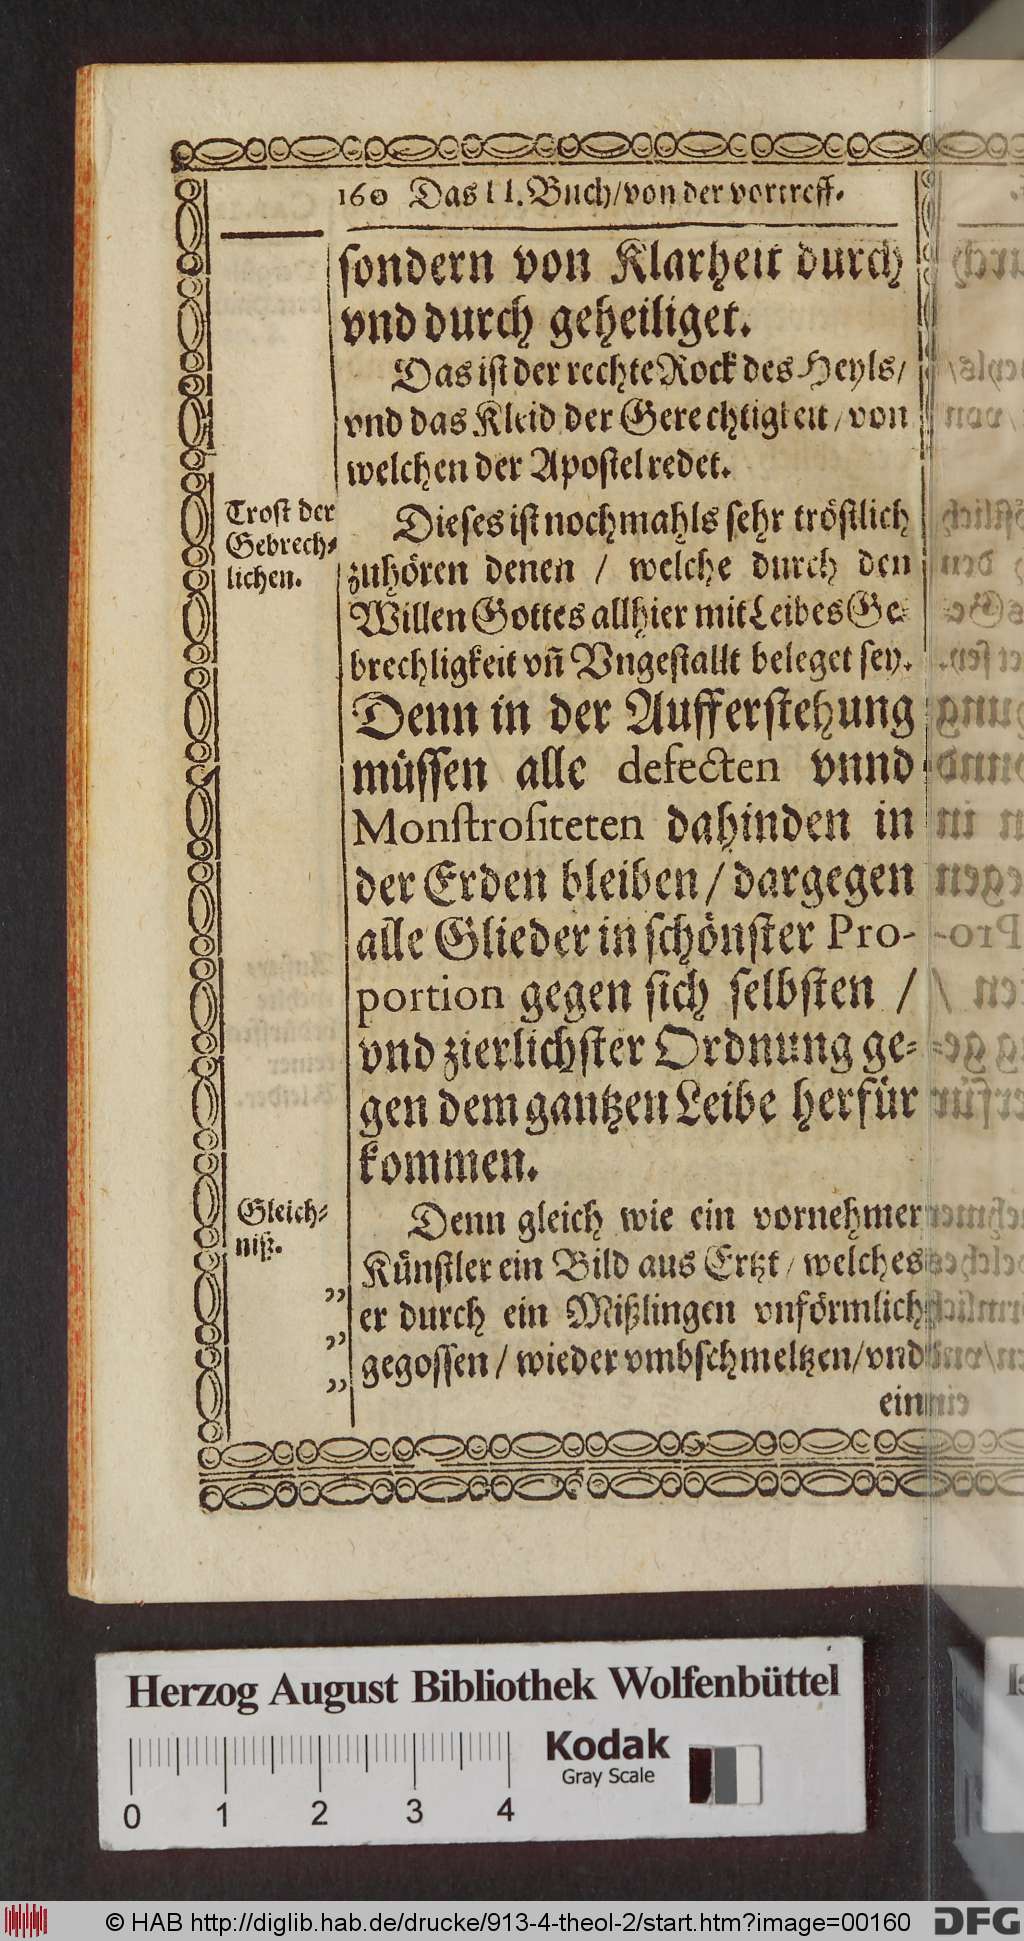 160 Das II. Buch/von der vortreff.
sondern von Klarheit durch
vnd durch geheiliget.
Das ist der rechte Rock des Heyls/
vnd das Kleid der Gerechtigkeit/von
welchen der Apostel redet.
Trost der
Gebrech-
lichen.
Dieses ist nochmahls sehr tröstlich
zuhören denen / welche durch den
Willen Gottes allhier mit Leibes Ge-
brechligkeit vñ Vngestallt beleget sey.
Denn in der Aufferstehung
müssen alle defecten vnnd
Monstrositeten dahinden in
der Erden bleiben/dargegen
alle Glieder in schönster Pro-
portion gegen sich selbsten /
vnd zierlichster Ordnung ge-
gen dem gantzen Leibe herfür
kommen.
Gleich-
niß.
Denn gleich wie ein vornehmer
Künstler ein Bild aus Ertzt/welches
„ er durch ein Mißlingen vnförmlich
„ gegossen/wieder vmbschmeltzen/vnd
„
ein
Herzog August Bibliothek Wolfenbüttel
0 1 2 3 4
Kodak
Gray Scale
© HAB http://diglib.hab.de/drucke/913-4-theol-2/start.htm?image=00160
DFG